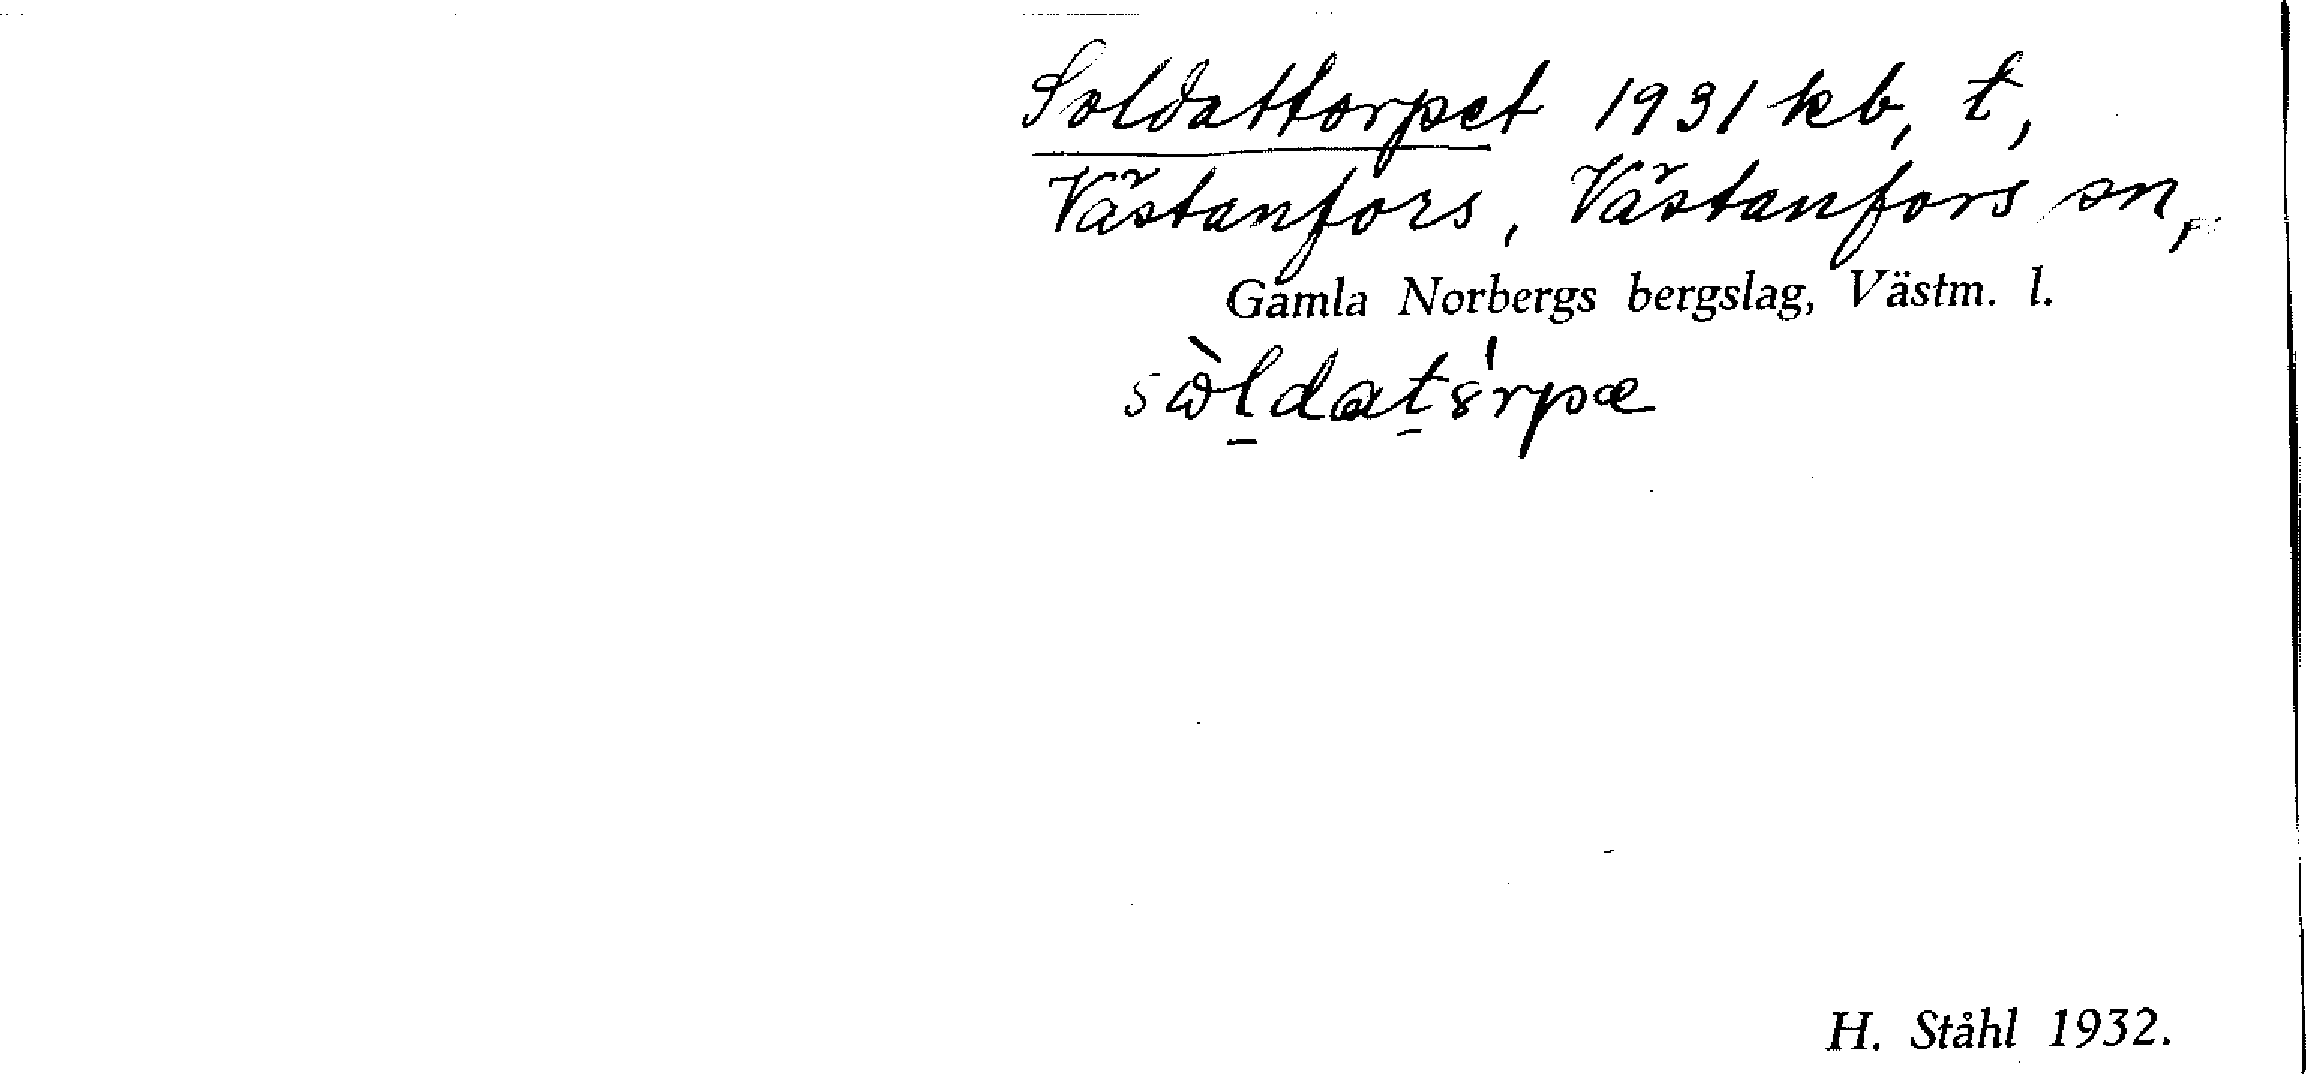 Soldattorpet 1931 kb, t,
Västanfors, Västanfors sn,
Gamla Norbergs bergslag, Västm. l.
sὼldat8́rpæ
H. Ståhl 1932.